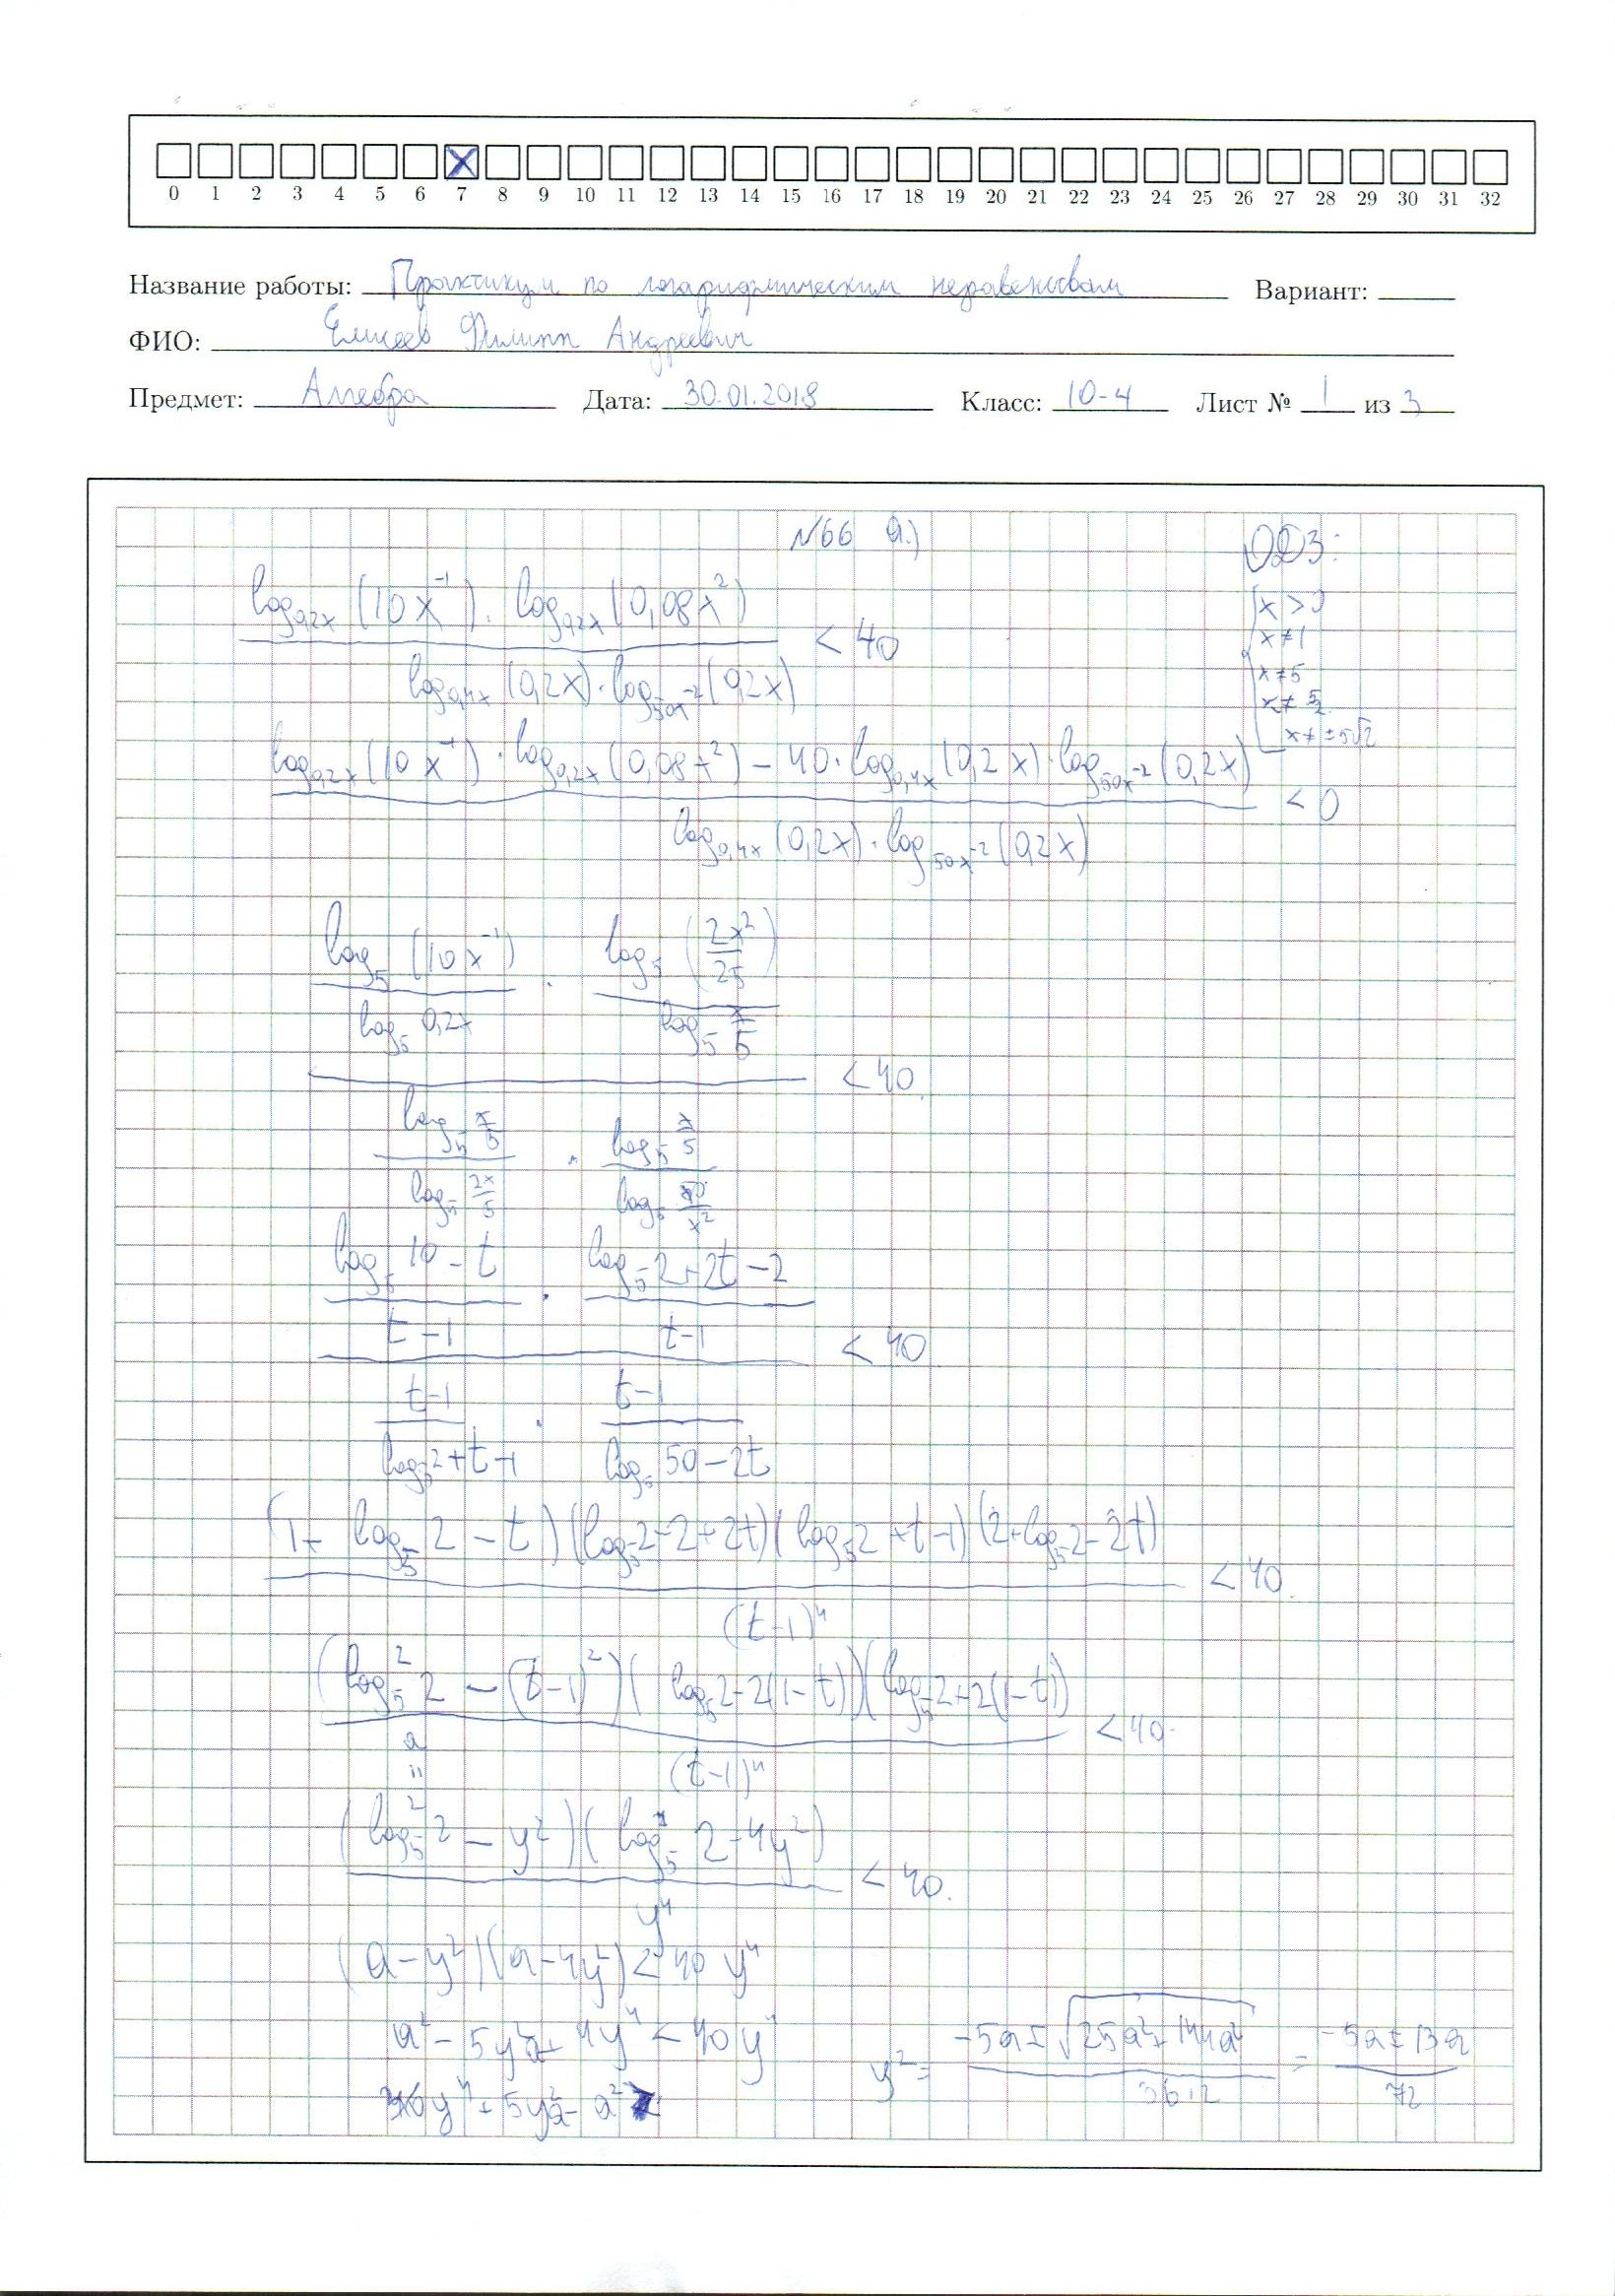 0 1 2 3 4 5 6 7 8 9 10 11 12 13 14 15 16 17 18 19 20 21 22 23 24 25 26 27 28 29 30 31 32
Название работы: Практикум по логарифмическим неравенствам Вариант:
ФИО: Елисеев Филипп Андреевич
Предмет: Алгебра Дата: 30.01.2018 Класс: 10-4 Лист № 1 из 3
№66 а.) ОДЗ:
x > 0
x ≠ 1
x ≠ 5
x ≠ 5/2
x ≠ ±5√2
log_{0,2x} (10x^{-1}) · log_{0,2x} (0,08x^2)
< 40
log_{0,4x} (0,2x) · log_{50x^{-2}} (0,2x)
log_{0,2x} (10x^{-1}) · log_{0,2x} (0,08x^2) - 40 · log_{0,4x} (0,2x) · log_{50x^{-2}} (0,2x)
< 0
log_{0,4x} (0,2x) · log_{50x^{-2}} (0,2x)
log_5 (10x^{-1}) · log_5 (2x^2/25)
log_5 0,2x log_5 x/5
< 40
log_5 x/5 · log_5 x/5
log_5 2x/5 log_5 50/x^2
log_5 10 - t · log_5 2 + 2t - 2
t - 1 t - 1
< 40
t - 1 · t - 1
log_5 2 + t - 1 log_5 50 - 2t
(1 + log_5 2 - t)(log_5 2 - 2 + 2t)(log_5 2 + t - 1)(2 + log_5 2 - 2t)
< 40
(t - 1)^4
(log_5^2 2 - (t - 1)^2)(log_5 2 - 2(1 - t))(log_5 2 + 2(1 - t))
< 40
a
=
(t - 1)^4
(log_5^2 2 - y^2)(log_5^2 2 - 4y^2)
< 40.
y^4
(a - y^2)(a - 4y^2) < 40 y^4
a^2 - 5y^2a + 4y^4 < 40y^4
36y^4 + 5y^2a - a^2
y^2 = (-5a ± √(25a^2 + 144a^2))/(36·2) = (-5a ± 13a)/72